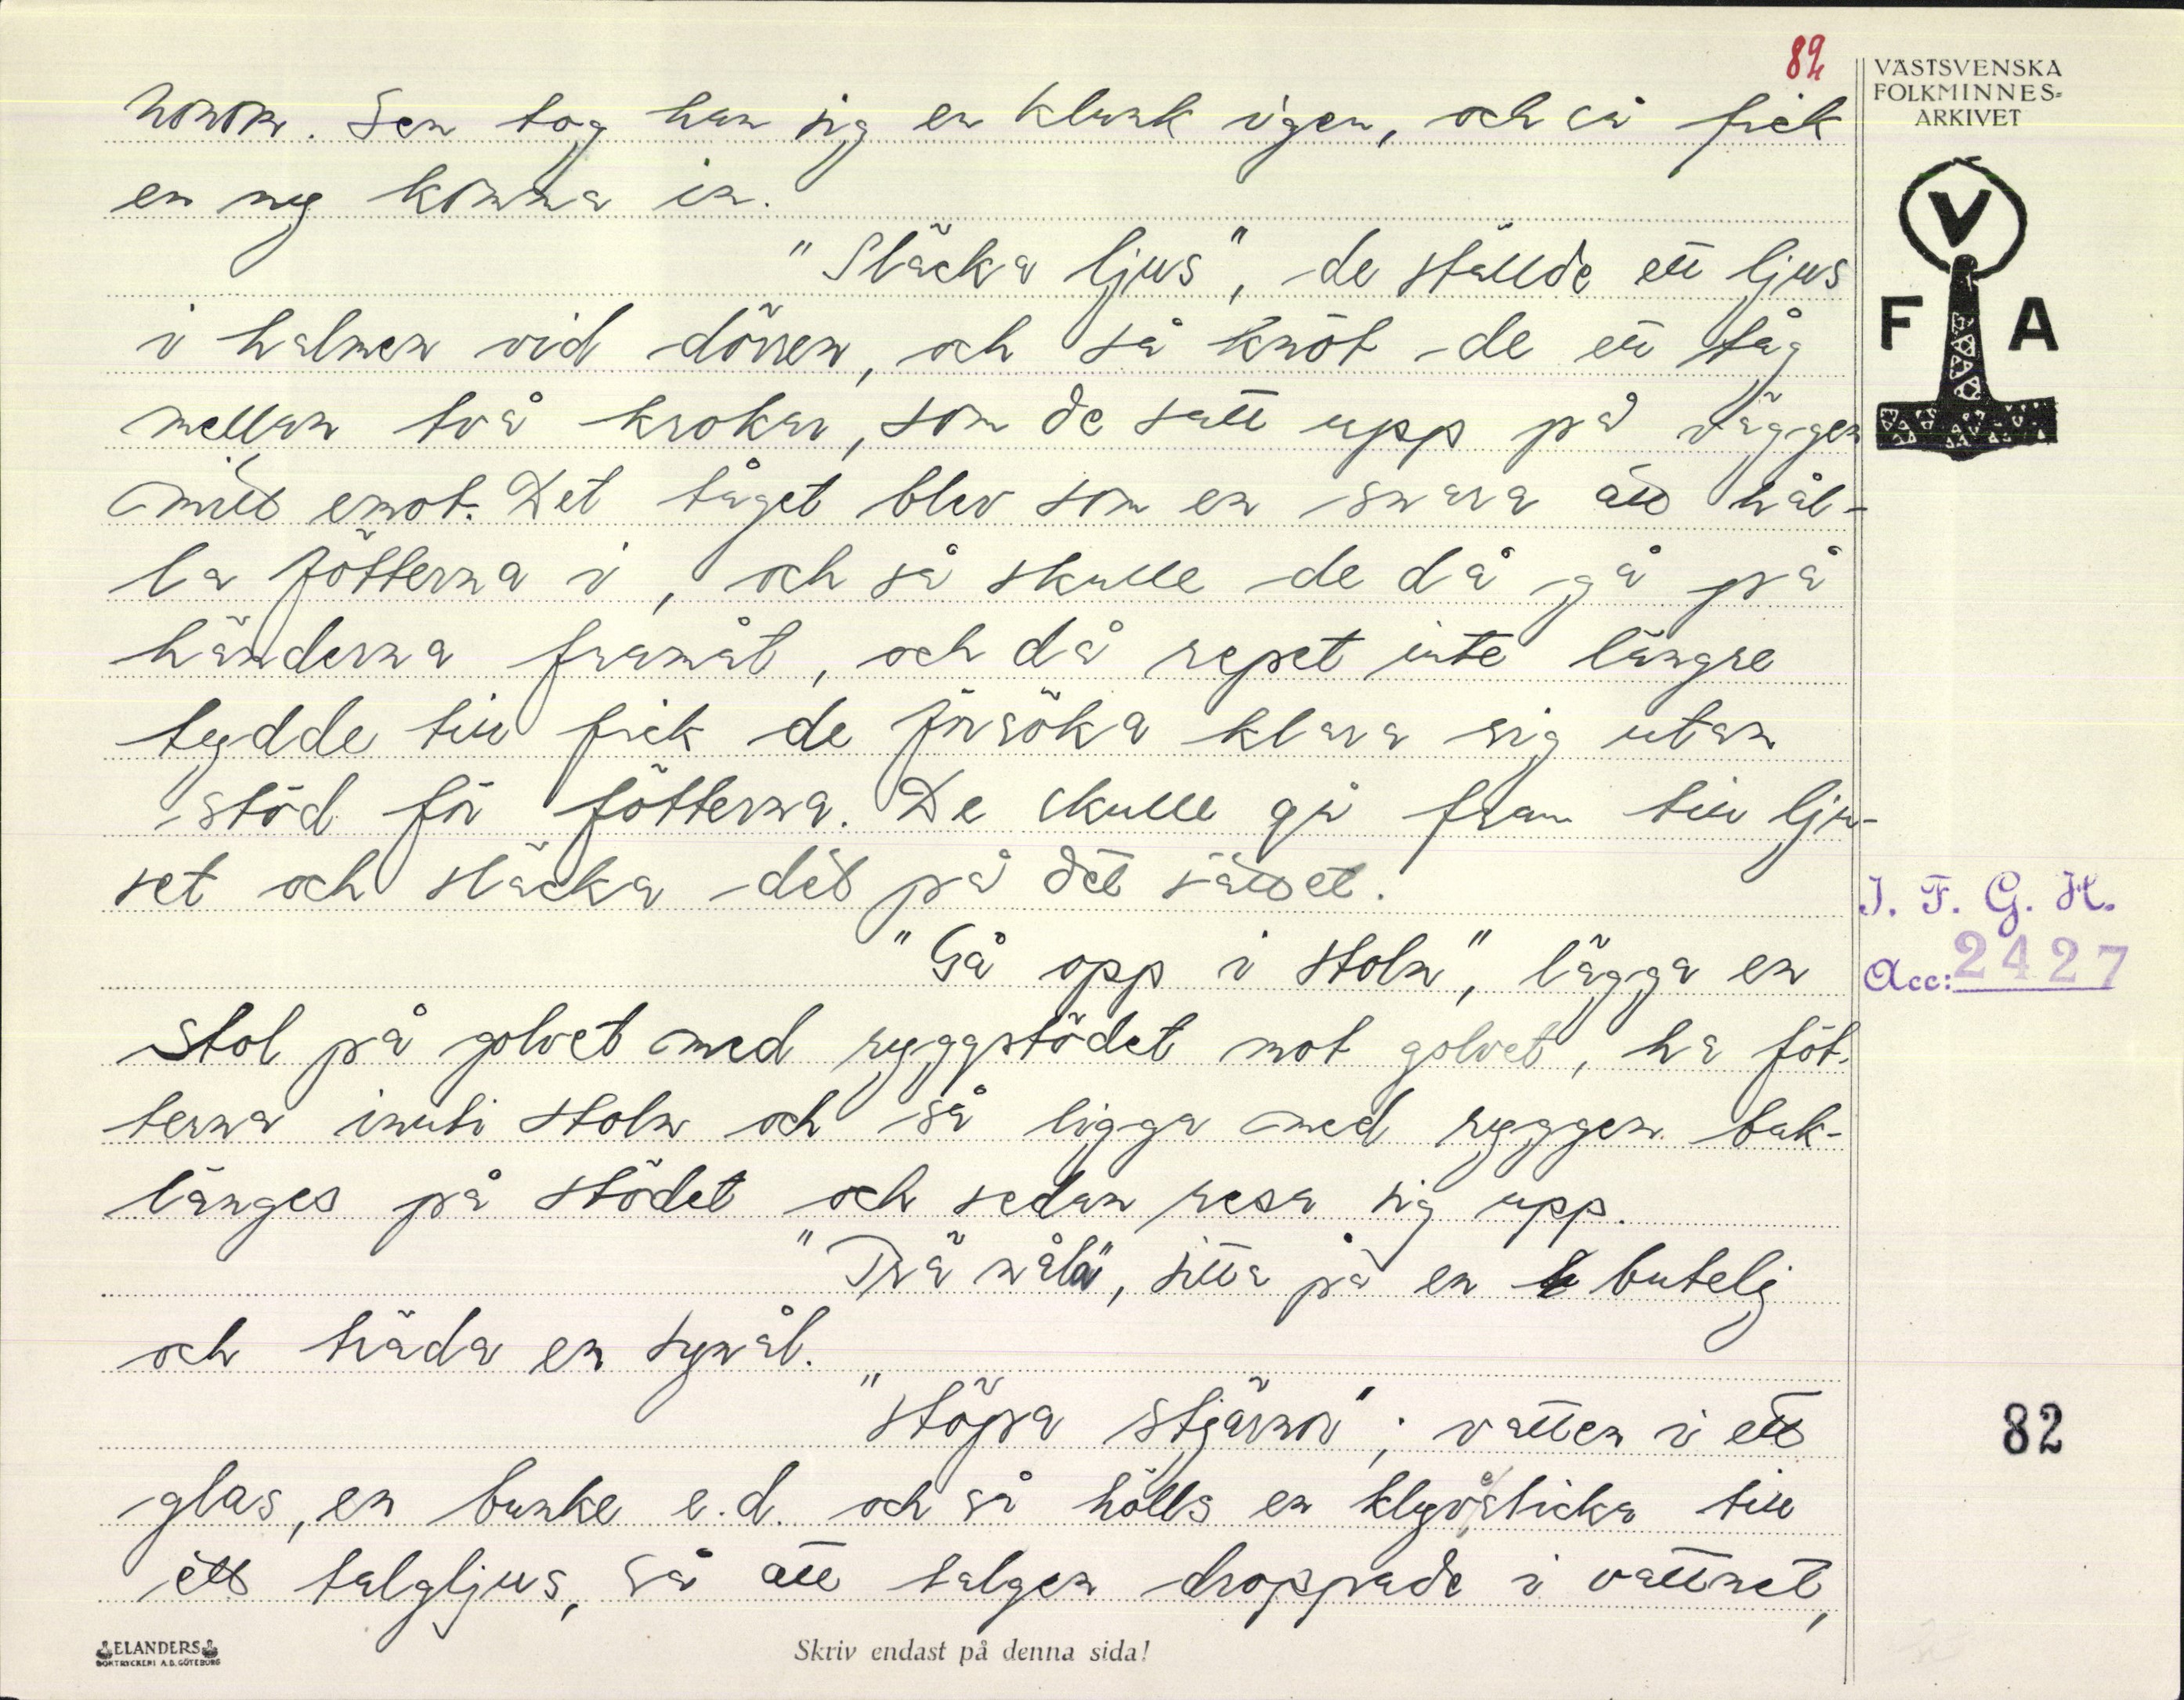 82
VÄSTSVENSKA
FOLKMINNES-
ARKIVET
V
F A
honom. Sen tog han sig en klunk igen, och så fick
en ny komma in.
"Släcka ljus", de ställde ett ljus
i halmen vid dörren, och så knöt de ett tåg
mellan två krokar, som de satt upp på väggen
mitt emot. Det tåget blev som en snara att hål-
la fötterna i, och så skulle de då gå på
händerna framåt, och då repet inte längre
tydde till fick de försöka klara sig utan
stöd för fötterna. De skulle gå fram till lju-
set och släcka det på det sättet.
"Gå opp i stoln", lägga en
stol på golvet med ryggstödet mot golvet, ha föt-
terna inuti stoln och så ligga med ryggen bak-
länges på stödet och sedan resa sig upp.
"Trä nåla", sitta på en butelj
och träda en synål.
"stöpa stjärnor"; vatten i ett
glas, en bunke e.d. och så hölls en klyvsticka till
ett talgljus, så att talgen droppade i vattnet,
I. F. G. H.
Acc: 2427
82
ELANDERS
BOKTRYCKERI A.B. GÖTEBORG
Skriv endast på denna sida!